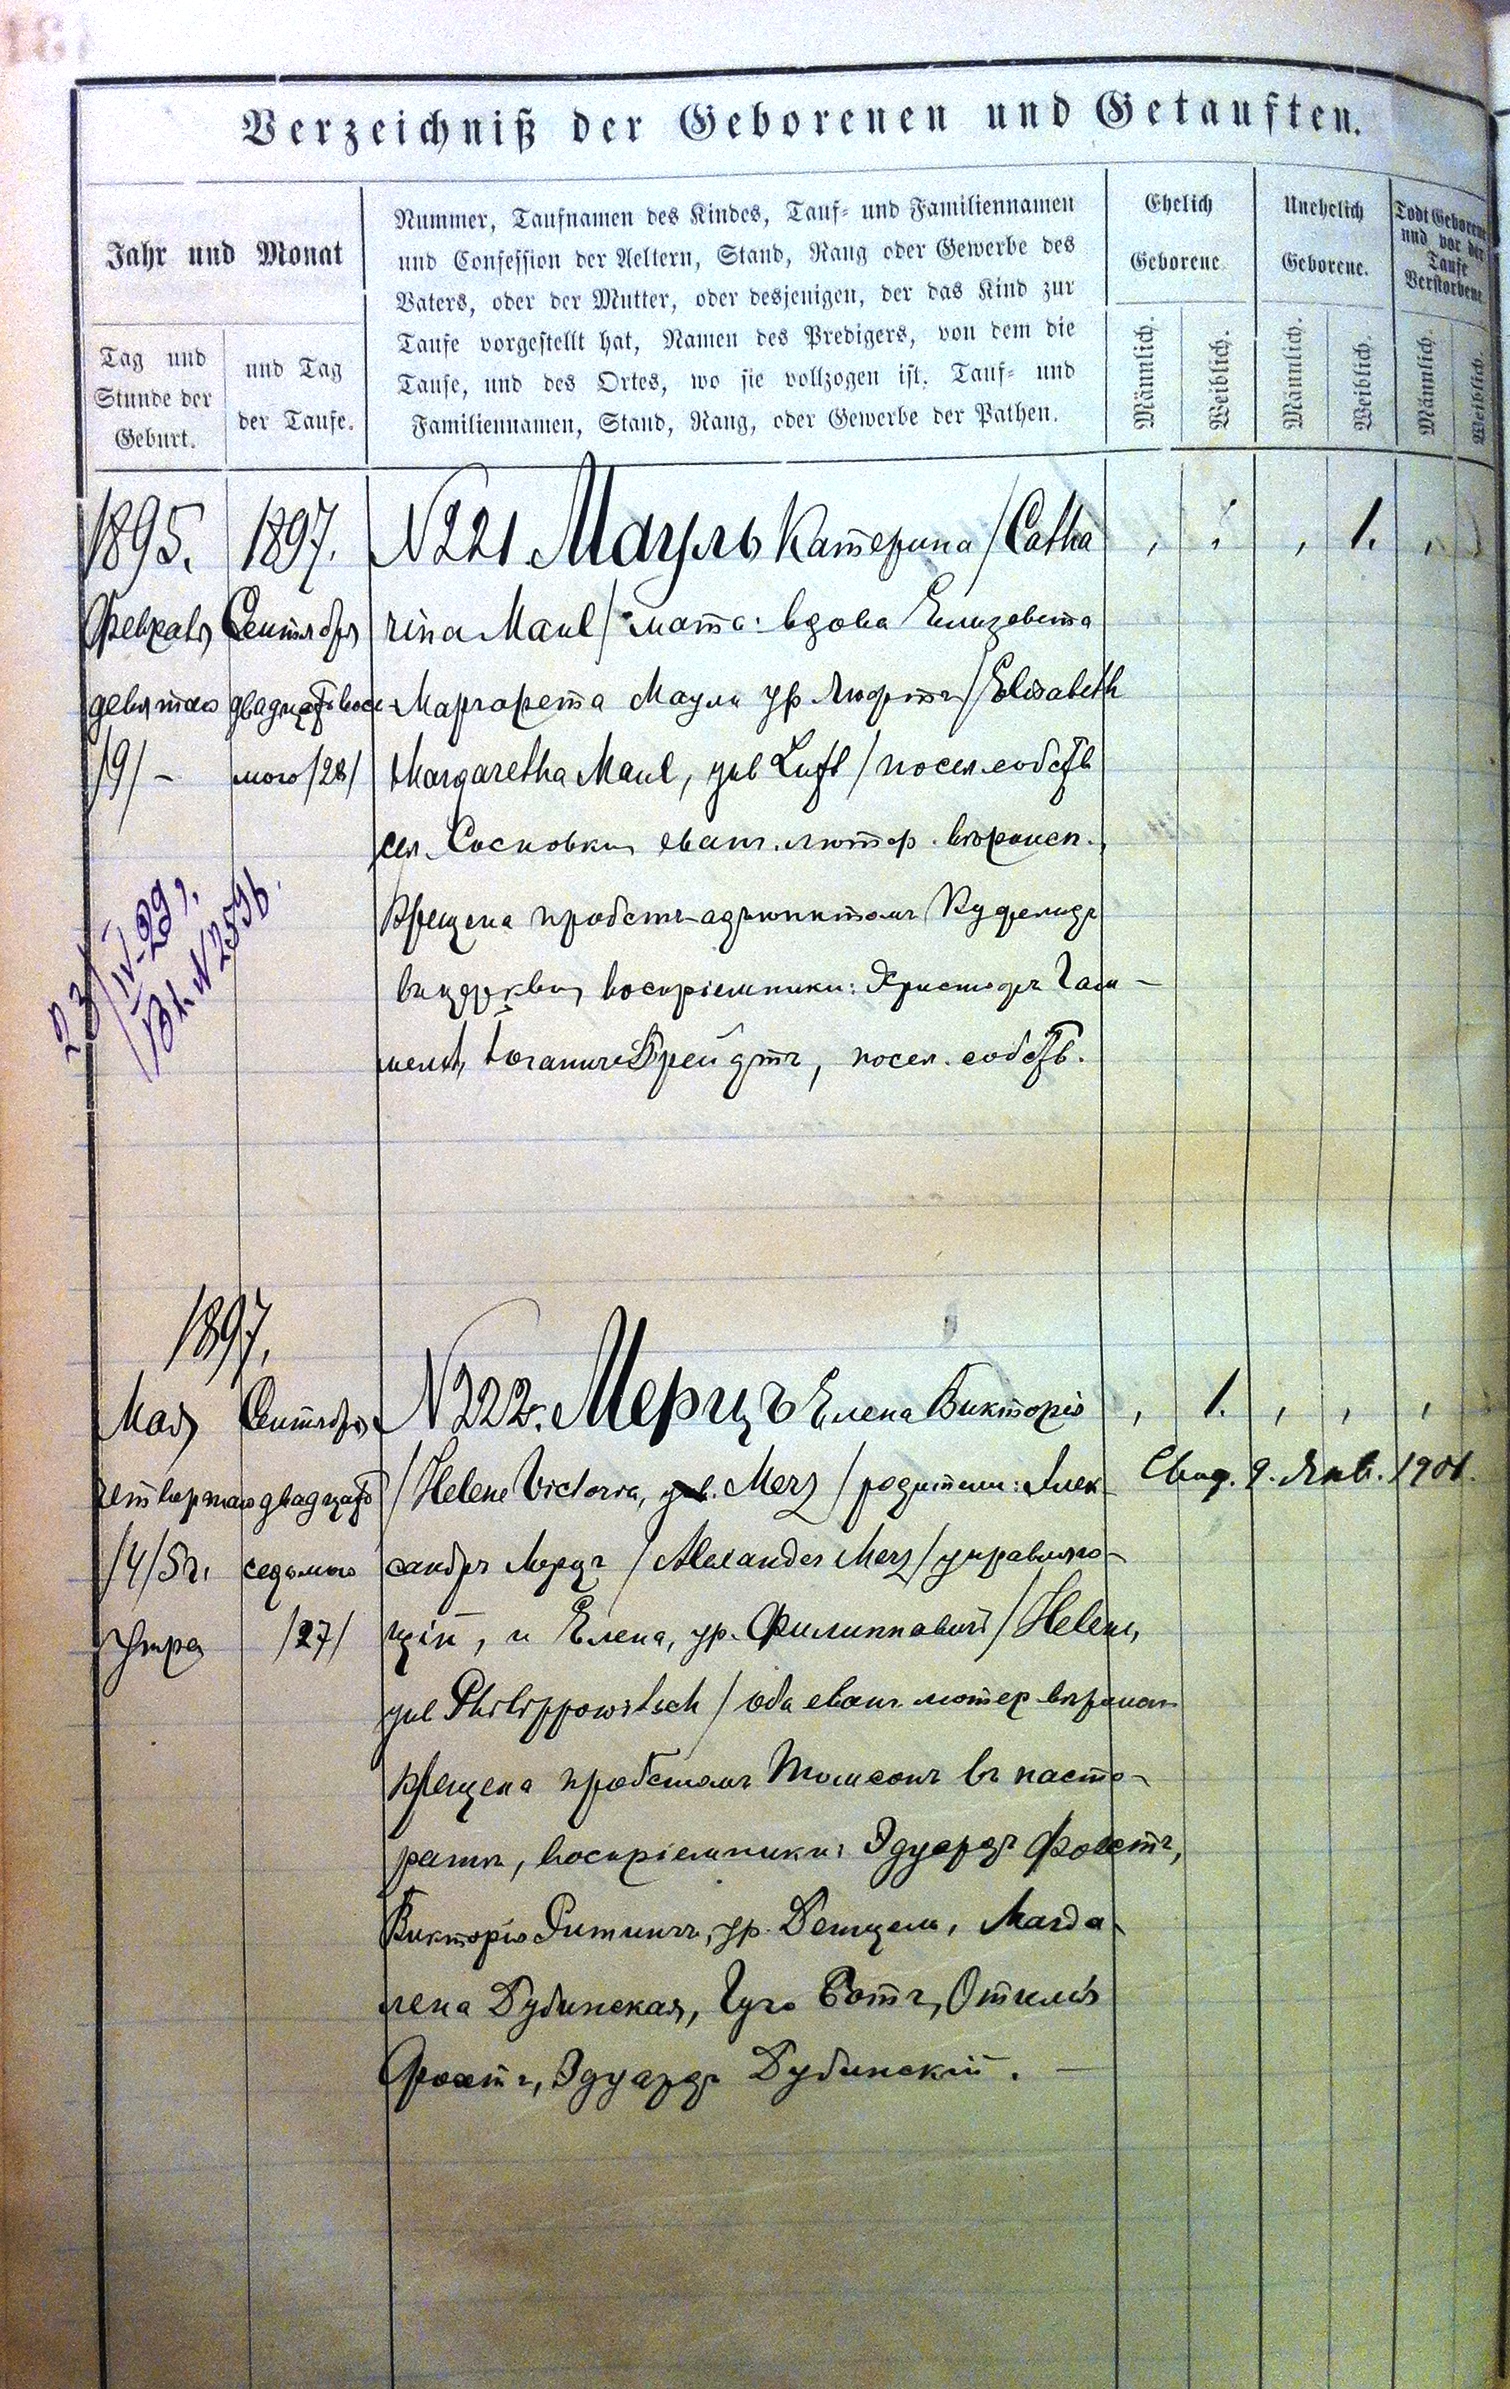 Verzeichniß der Geborenen und Getauften.
Jahr und Monat
Tag und
Stunde der
Geburt.
und Tag
der Taufe.
Nummer, Taufnamen des Kindes, Tauf- und Familiennamen
und Confession der Aeltern, Stand, Rang oder Gewerbe des
Vaters, oder der Mutter, oder desjenigen, der das Kind zur
Taufe vorgestellt hat, Namen des Predigers, von dem die
Taufe, und des Ortes, wo sie vollzogen ist. Tauf- und
Familiennamen, Stand, Rang, oder Gewerbe der Pathen.
Ehelich
Geborene.
Unehelich
Geborene.
Todt Geborene
und vor der
Taufe
Verstorbene
Männlich.
Weiblich.
Männlich.
Weiblich.
Männlich.
Weiblich.
1895.
Февраля
девятаго
/9/ –
1897.
Сентября
двадцать вось-
мого /28/
N 221. Мауль Катерина /Catha
rina Maul/ мать: вдова Елизавета
Маргарета Мауль ур. Люфтъ /Elisabeth
Margaretha Maul, geb Luft/ посел. собств
сел. Сосновки, еванг. лютер. вѣроисп.,
крещена пробстъ-адъюнктомъ
въ церкви, воспріемники: Христофъ Гам-
мель, Іоганнъ Брейдтъ, посел. собств.
23/IV-29 г.
Вх. N 2596.
1.
1897.
Мая
четвертаго
/4/ 5 ч.
утра
Сентября
двадцать
седьмого
/27/
N 222. Мерцъ Елена Викторія
/Helene Victoria, geb. Merz/ родители: Алек-
сандръ Мерцъ /Alexander Merz/ управляю-
щій, и Елена, ур. Филипповичъ /Helene,
geb Philippowitsch/ оба еванг. лютер. вѣроисп
крещена пробстомъ Томсонъ въ пасто-
ратѣ, воспріемники: Эдуардъ
Викторія ур. Магда-
лена Дубинская, Гуго Ротъ, Отилія
Эдуардъ Дубинскій. –
1.
Свид. 9. Янв. 1901.